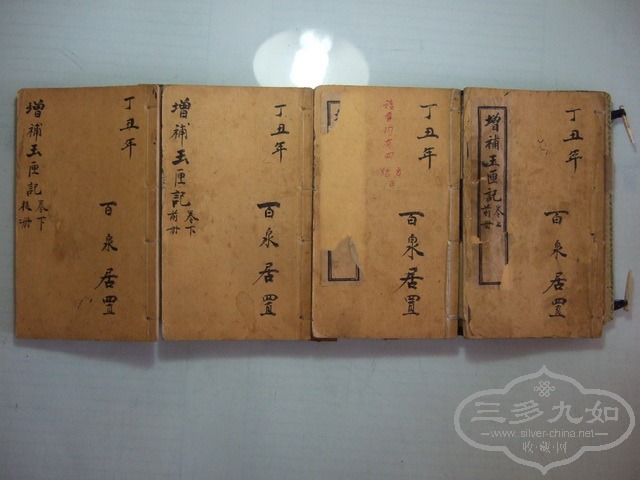 丁丑年
增補玉匣記
卷上
前册
百泉居置
丁丑年
百泉居置
丁丑年
增補玉匣記
卷下
前册
百泉居置
丁丑年
增補玉匣記
卷下
後册
百泉居置
三多九如
www.silver-china.net
收·藏·网